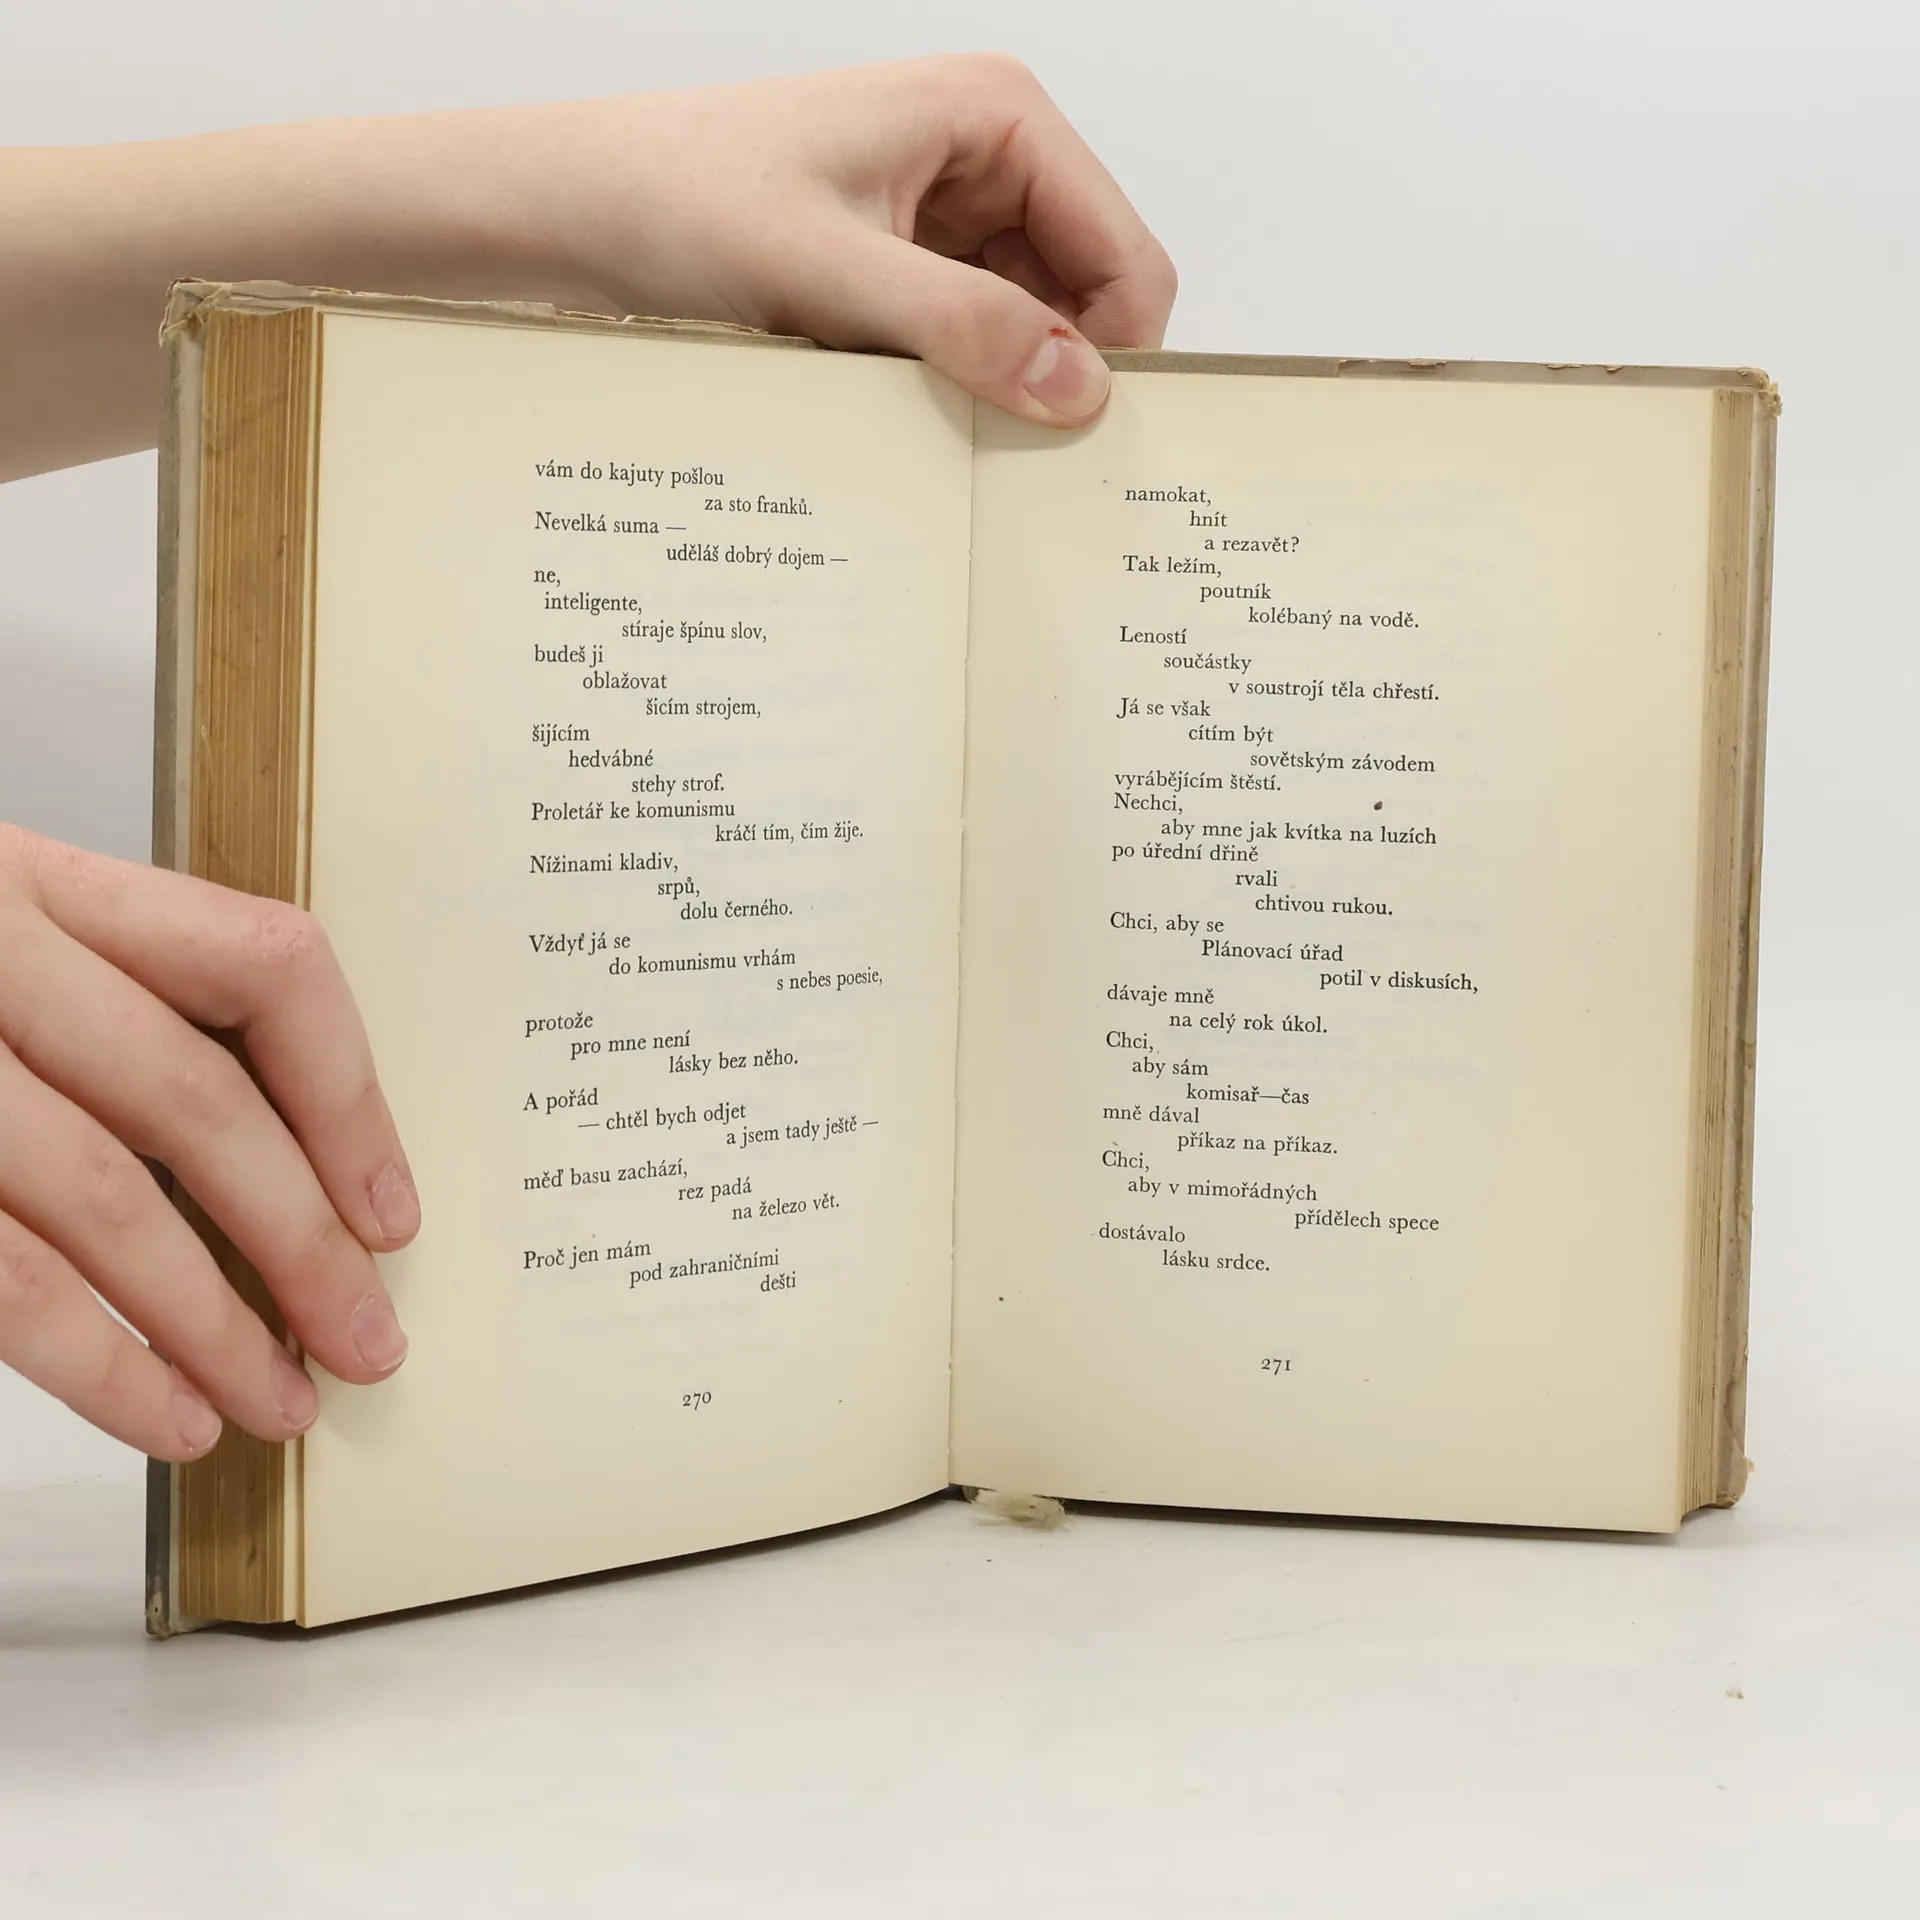 vám do kajuty pošlou
za sto franků.
Nevelká suma —
uděláš dobrý dojem —
ne,
inteligente,
stíraje špínu slov,
budeš ji
oblažovat
šicím strojem,
šijícím
hedvábné
stehy strof.
Proletář ke komunismu
kráčí tím, čím žije.
Nížinami kladiv,
srpů,
dolu černého.
Vždyť já se
do komunismu vrhám
s nebes poesie,
protože
pro mne není
lásky bez něho.
A pořád
— chtěl bych odjet
a jsem tady ještě —
měď basu zachází,
rez padá
na železo vět.
Proč jen mám
pod zahraničními
dešti
270
namokat,
hnít
a rezavět?
Tak ležím,
poutník
kolébaný na vodě.
Leností
součástky
v soustrojí těla chřestí.
Já se však
cítím být
sovětským závodem
vyrábějícím štěstí.
Nechci,
aby mne jak kvítka na luzích
po úřední dřině
rvali
chtivou rukou.
Chci, aby se
Plánovací úřad
potil v diskusích,
dávaje mně
na celý rok úkol.
Chci,
aby sám
komisař—čas
mně dával
příkaz na příkaz.
Chci,
aby v mimořádných
přídělech spece
dostávalo
lásku srdce.
271